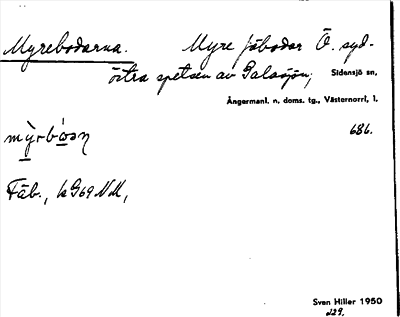 Myrebodarna. Myre fäbodar Ö. syd-
östra spetsen av Galasjön; Sidensjö sn,
Ångermanl. n. doms. tg., Västernorrl, l.
686.
Fäb.,
Sven Hiller 1950